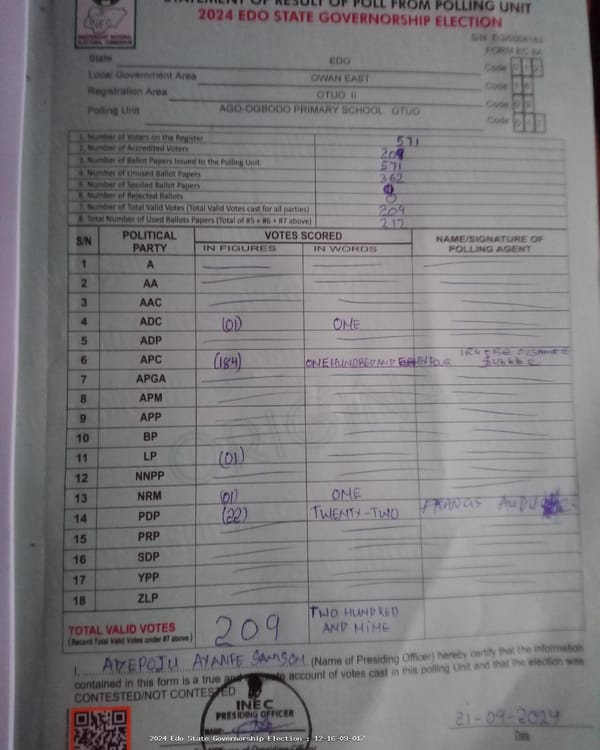 STATEMENT OF RESULT OF POLL FROM POLLING UNIT
2024 EDO STATE GOVERNORSHIP ELECTION
INEC
INDEPENDENT NATIONAL ELECTORAL COMMISSION
FORM EC 8A
State EDO Code
Local Government Area OWAN EAST Code
Registration Area OTUO II Code
Polling Unit AGO-OGBODO PRIMARY SCHOOL OTUO Code
1. Number of Voters on the Register 571
2. Number of Accredited Voters 209
3. Number of Ballot Papers Issued to the Polling Unit 571
4. Number of Unused Ballot Papers 362
5. Number of Spoiled Ballot Papers
6. Number of Rejected Ballots 0
7. Number of Total Valid Votes (Total Valid Votes cast for all parties) 209
8. Total Number of Used Ballots Papers (Total of #5 + #6 + #7 above) 212
S/N POLITICAL PARTY VOTES SCORED NAME/SIGNATURE OF POLLING AGENT
IN FIGURES IN WORDS
1 A
2 AA
3 AAC
4 ADC (01) ONE
5 ADP
6 APC (184) ONE HUNDRED AND EIGHTY FOUR
7 APGA
8 APM
9 APP
10 BP
11 LP (01)
12 NNPP
13 NRM (01) ONE
14 PDP (22) TWENTY-TWO FRANCIS AUDU
15 PRP
16 SDP
17 YPP
18 ZLP
TOTAL VALID VOTES 209 TWO HUNDRED
(Record Total Valid Votes under #7 above) AND NINE
I, ADEPOJU AYANFE SAMSON (Name of Presiding Officer) hereby certify that the information
contained in this form is a true and account of votes cast in this polling Unit and that the election was
CONTESTED/NOT CONTESTED
INEC
PRESIDING OFFICER
NAME:
21-09-2024
Date
2024 Edo State Governorship Election : 12-16-09-017